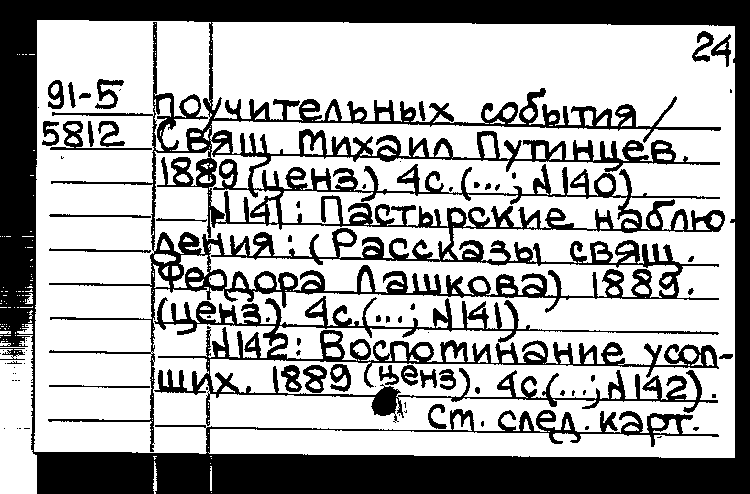 24.
91-5 поучительных события /
5812 Свящ. Михаил Путинцев.
1889 (ценз.). 4с. (...; №140).
№141: Пастырские наблю-
дения: (Рассказы свящ.
Феодора Лашкова) 1889.
(ценз.). 4с. (...; №141).
№142: Воспоминание усоп-
ших. 1889 (ценз). 4с. (...; №142).
Ст. след. карт.